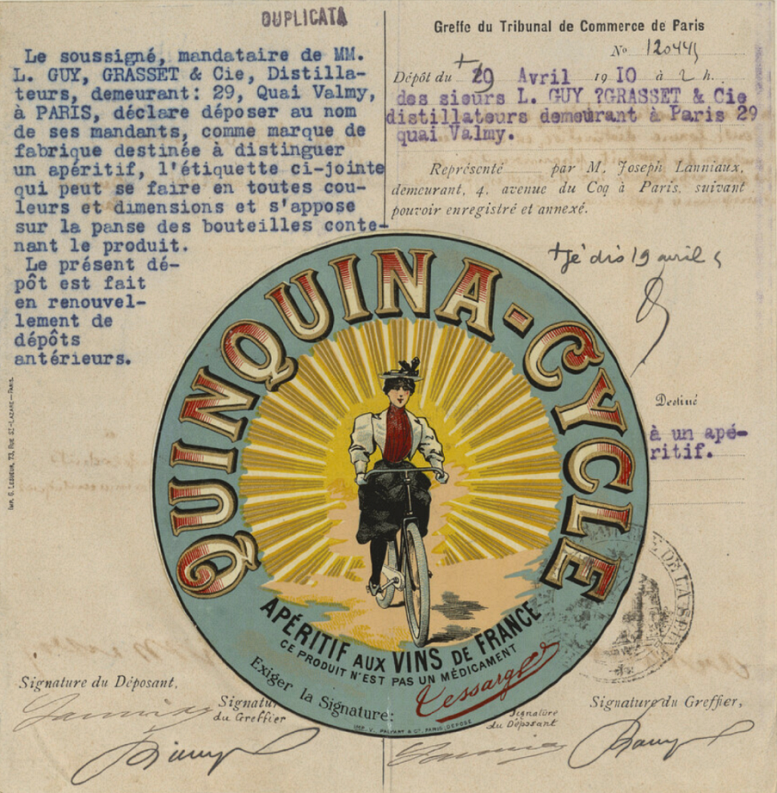 DUPLICATA
Le soussigné, mandataire de MM.
L. GUY, GRASSET & Cie, Distilla-
teurs, demeurant: 29, Quai Valmy,
à PARIS, déclare déposer au nom
de ses mandants, comme marque de
fabrique destinée à distinguer
un apéritif, l'étiquette ci-jointe
qui peut se faire en toutes cou-
leurs et dimensions et s'appose
sur la panse des bouteilles conte-
nant le produit.
Le présent dé-
pôt est fait
en renouvel-
lement de
dépôts
antérieurs.
Greffe du Tribunal de Commerce de Paris
No 120445
Dépôt du + 29 Avril 1910 à 2 h.
des sieurs L. GUY ?GRASSET & Cie
distillateurs demeurant à Paris 29
quai Valmy.
Représenté par M. Joseph Lanniaux,
demeurant, 4, avenue du Coq à Paris, suivant
pouvoir enregistré et annexé.
+ Je dis 19 avril
Destiné
à un apé-
ritif.
QUINQUINA-CYCLE
APÉRITIF AUX VINS DE FRANCE
CE PRODUIT N'EST PAS UN MÉDICAMENT
Exiger la Signature:
IMP. G. LESUEUR, 73, RUE ST-LAZARE—PARIS.
DE LA SE
Signature du Déposant,
Signatur
du Greffier
Signature
du Déposant
Signature du Greffier,